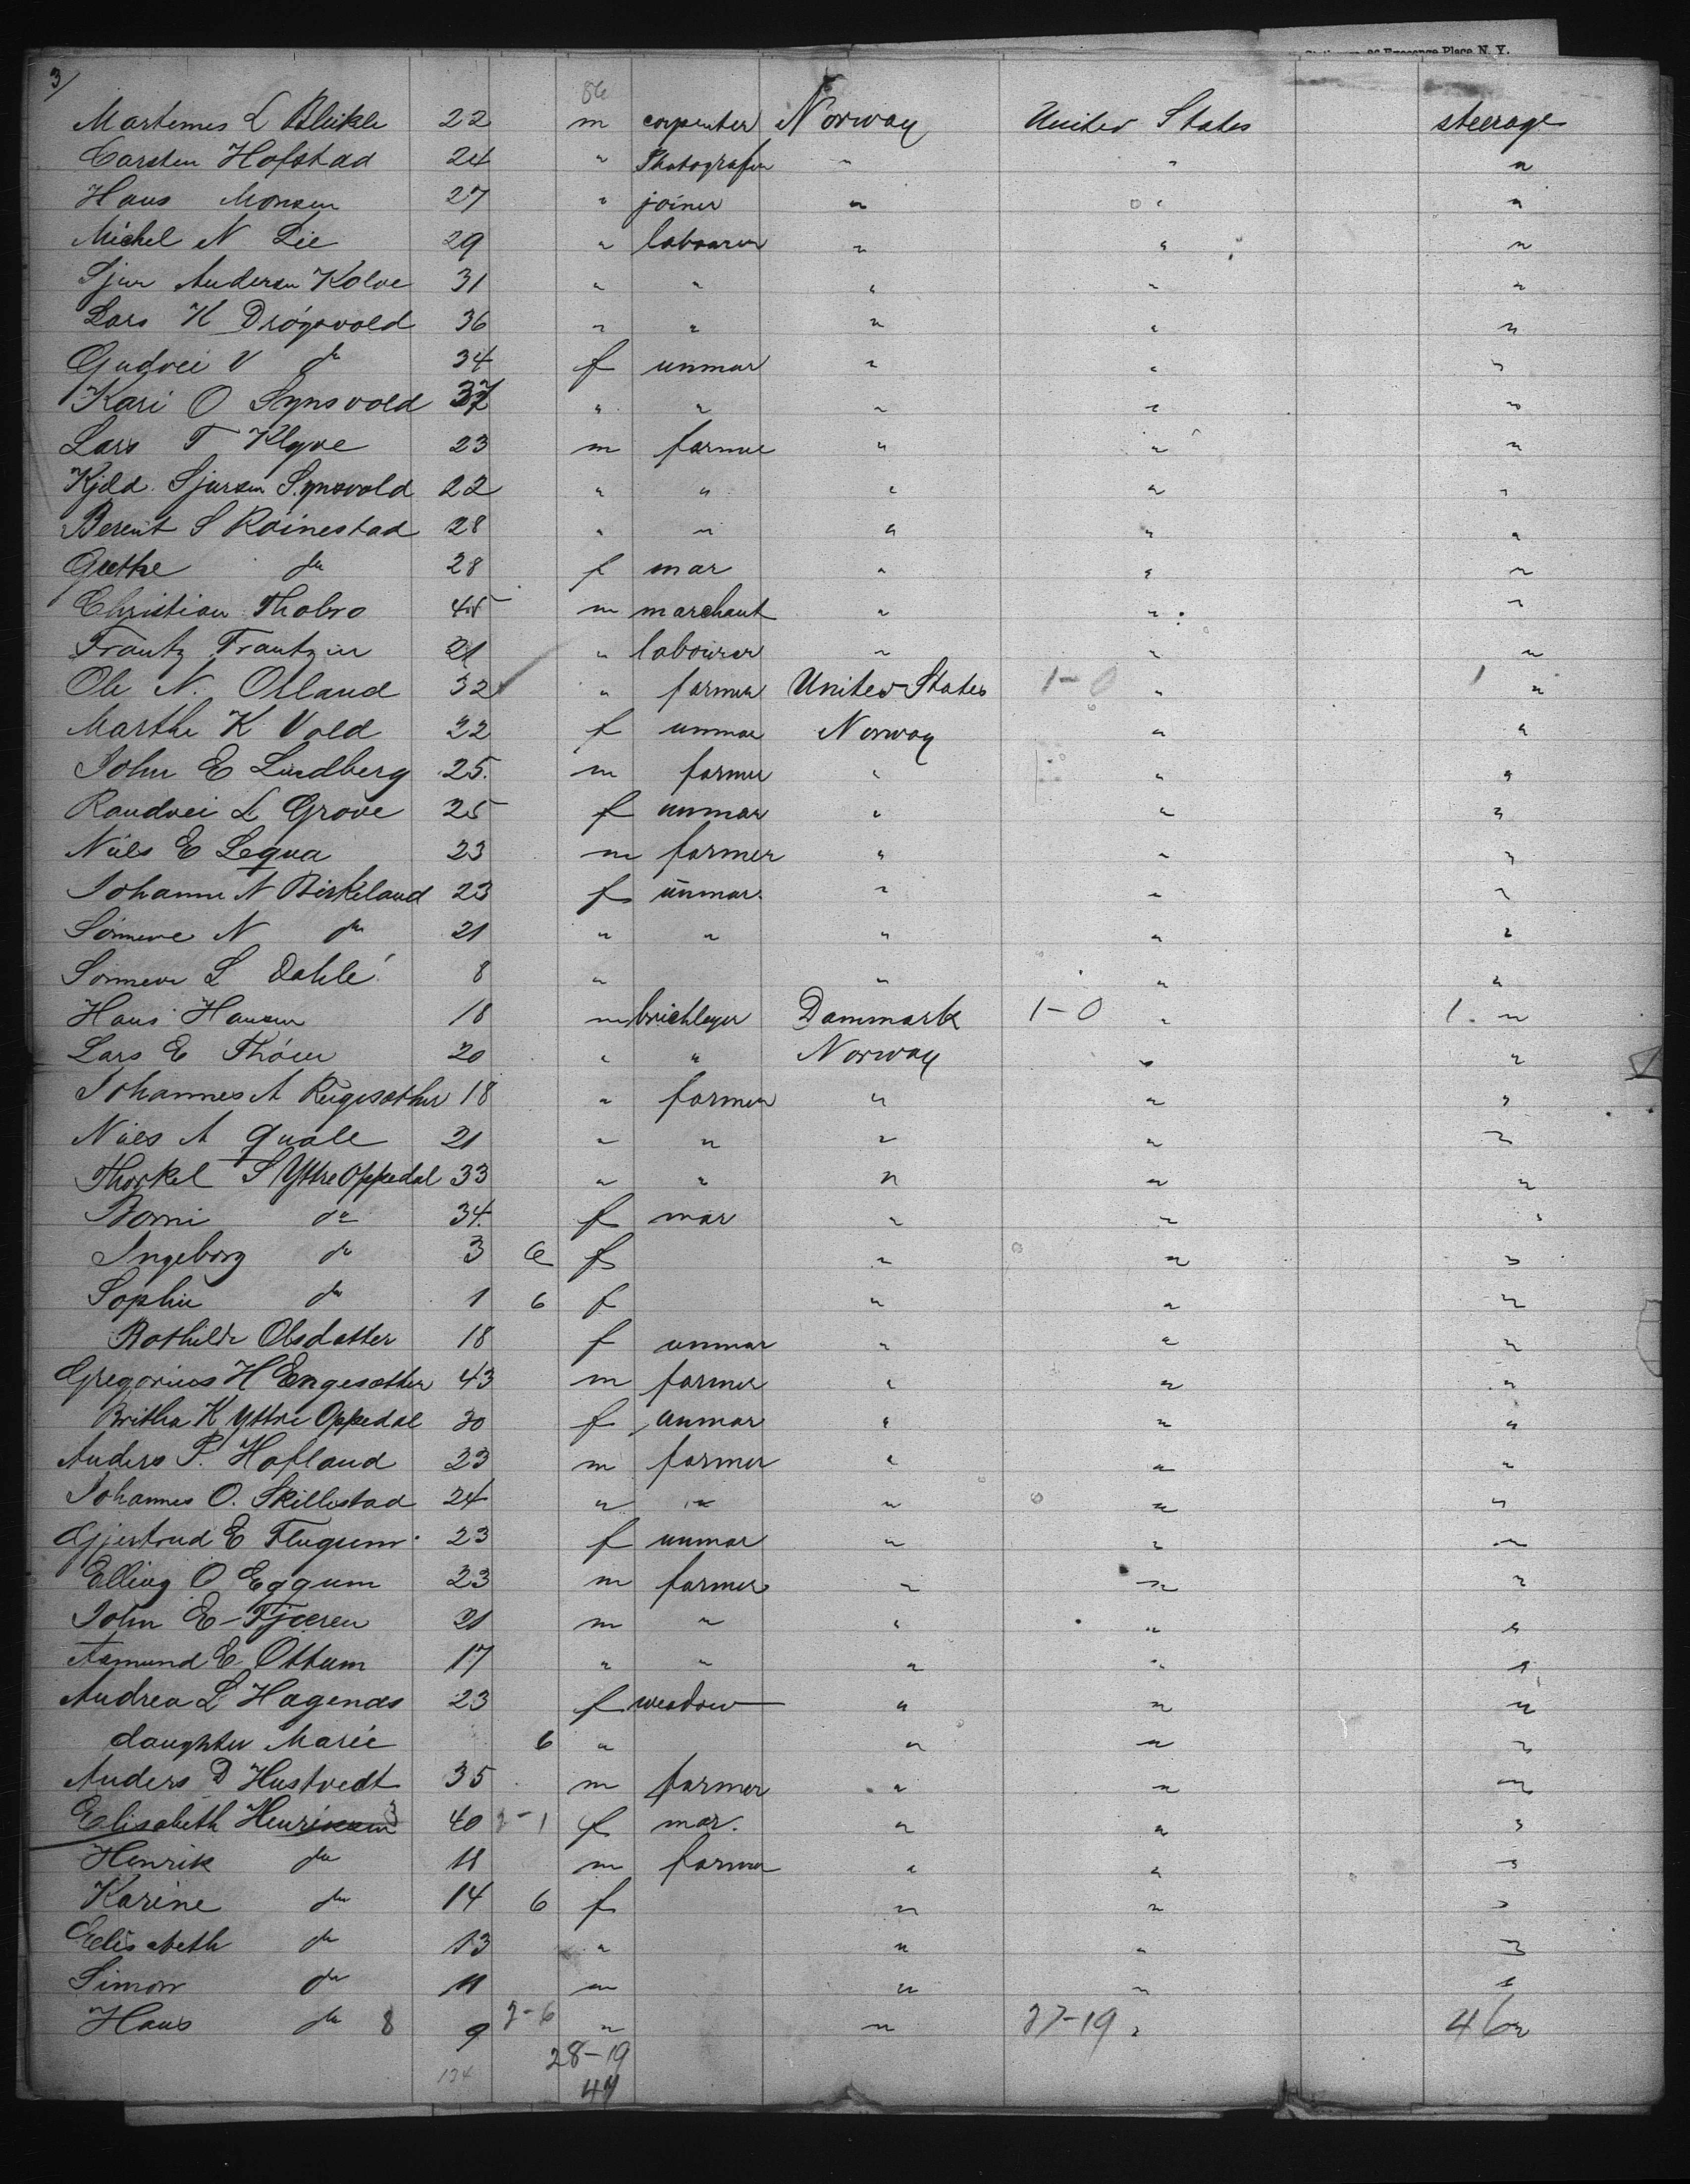 Exchange Place N. Y.
3/
86
Martemes L Bleikle 22 m carpenter Norway United States steerage
Carsten Hofstad 24 " Photografer " " "
Hans Monsen 27 " joiner " " "
Michel N Lie 29 " labourer " " "
Sjur Andersen Kolve 31 " " " " "
Lars K Drógsvold 36 " " " " "
Gudvei V do 34 f unmar " " "
Kari O Synsvold 37 " " " " "
Lars T Klyve 23 m farmer " " "
Kjeld Sjursen Synsvold 22 " " " " "
Berent S Roinestad 28 " " " " "
Grethe do 28 f mar " " "
Christian Tholvo 45 m marchant " " "
Frantz Frantzen 21 " labourer " " "
Ole N. Osland 32 " farmer United States 1-0 " 1 "
Marthe K Vold 22 f unmar Norway " "
John E Lindberg 25. m farmer " " "
Randvei L Grove 25 f unmar " " "
Niels E Leqva 23 m farmer " " "
Johanne N Birkeland 23 f unmar. " " "
Sónneve N do 21 " " " " "
Sonneve L Dahle 8 " " " "
Hans Hansen 18 m brichleyer Dammark 1-0 " 1. "
Lars E Thóen 20 " " Norway " "
Johannes A Rugesæther 18 " farmer " " "
Niels A Quale 21 " " " " "
Thorkel S Yttre Oppedal 33 " " " " "
Borni do 34. f mar " " "
Ingeborg do 3 6 f " " "
Sophie do 1 6 f " " "
Bothilde Olsdatter 18 f unmar " " "
Gregorius H Engesæther 43 m farmer " " "
Britha K Yttre Oppedal 30 f unmar " " "
Anders P. Hofland 23 m farmer " " "
Johannes O. Skillestad 24 " " " " "
Gjertrud E Flugum 23 f unmar " " "
Elling O Eggum 23 m farmer " " "
John E Fjæren 21 m " " " "
Aamund E Ottum 17 " " " " "
Andrea L Hagenæs 23 f weadow " " "
daughter Marie 6 " " " "
Anders D Hustvedt 35 m farmer " " "
Elisabeth Henriksen 40 2-1 f mar. " " "
Henrik do 18 m farmer " " "
Karine do 14 6 f " " "
Elisabeth do 13 " " " "
Simon do 11 m " " "
Hans do 8 9 2-6 " " 27-19 " 46 "
124 28-19
47